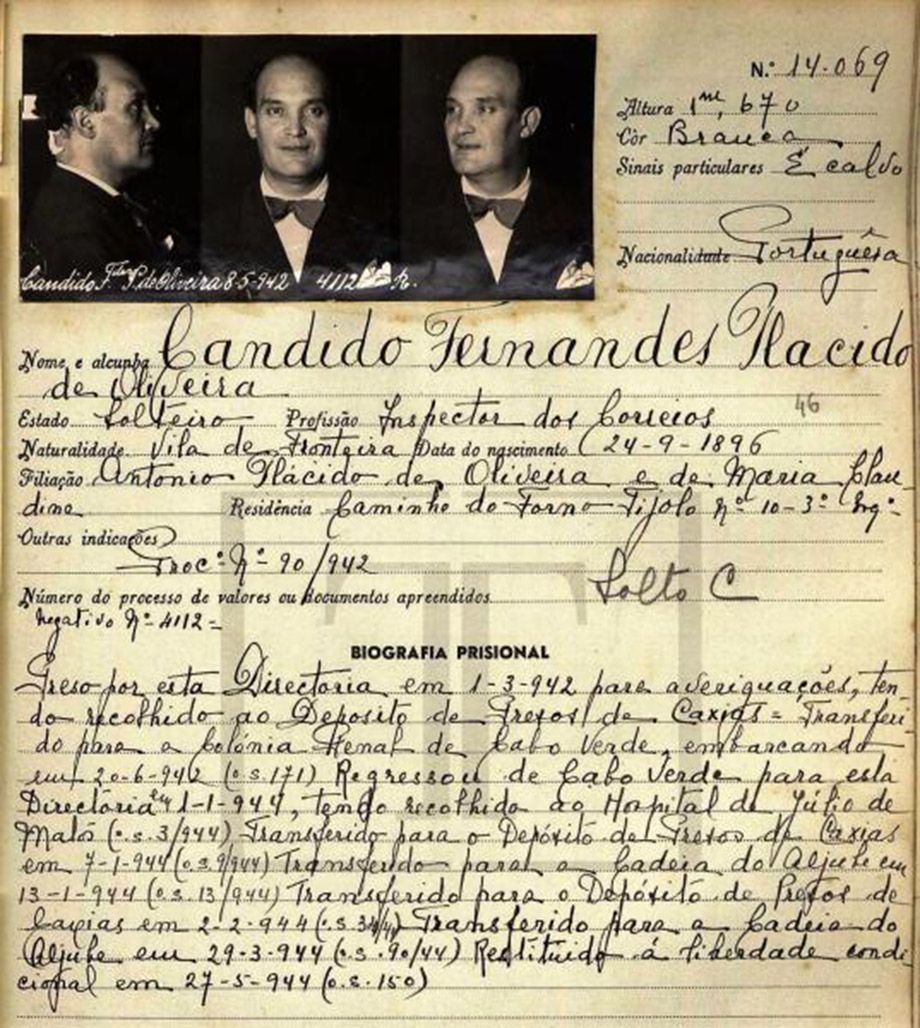 N.º 14.069
Altura 1m, 670
Côr Branca
Sinais particulares É calvo
Nacionalidade Portuguêsa
Candido Fdes P. de Oliveira 8-5-942 4112 R.
Nome e alcunha Candido Fernandes Placido
de Oliveira
Estado Solteiro Profissão Inspector dos Correios 46
Naturalidade Vila de Fronteira Data do nascimento 24-9-1896
Filiação Antonio Plácido de Oliveira e de Maria Clau-
dina Residência Caminho do Forno Tijolo Nº 10-3º Esqº
Outras indicações
Procº Nº 90/942
Número do processo de valores ou documentos apreendidos Solto C
Negativo Nº 4112=
BIOGRAFIA PRISIONAL
Preso por esta Directoria em 1-3-942 para averiguações, ten-
do recolhido ao Deposito de Presos de Caxias = Transferi-
do para a Colónia Penal de Cabo Verde, embarcando
em 20-6-942 (o.s.171) Regressou de Cabo Verde para esta
Directória em 1-1-944, tendo recolhido ao Hospital de Júlio de
Matos (o.s.3/944) Transferido para o Depósito de Presos de Caxias
em 7-1-944 (o.s.9/944) Transferido para a Cadeia do Aljube em
13-1-944 (o.s.13/944) Transferido para o Depósito de Presos de
Caxias em 2-2-944 (o.s.34/44) Transferido para a Cadeia do
Aljube em 29-3-944 (o.s.90/44) Restituido á liberdade condi-
cional em 27-5-944 (o.s.150)